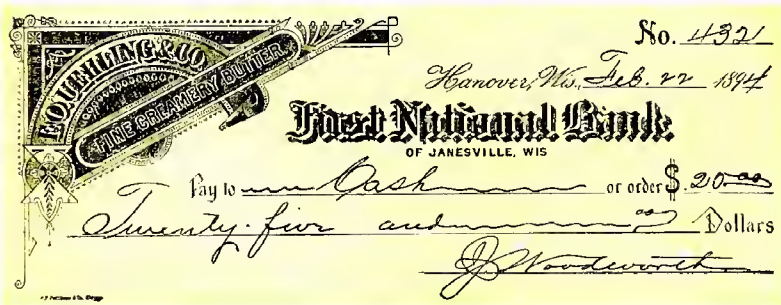 No. 4321
E.O. UEHLING & CO.
FINE CREAMERY BUTTER.
Hanover, Wis., Feb. 22 1894
First National Bank
OF JANESVILLE, WIS
Pay to Cash or order $ 20.00
Twenty-five and 00 Dollars
J. Woodworth